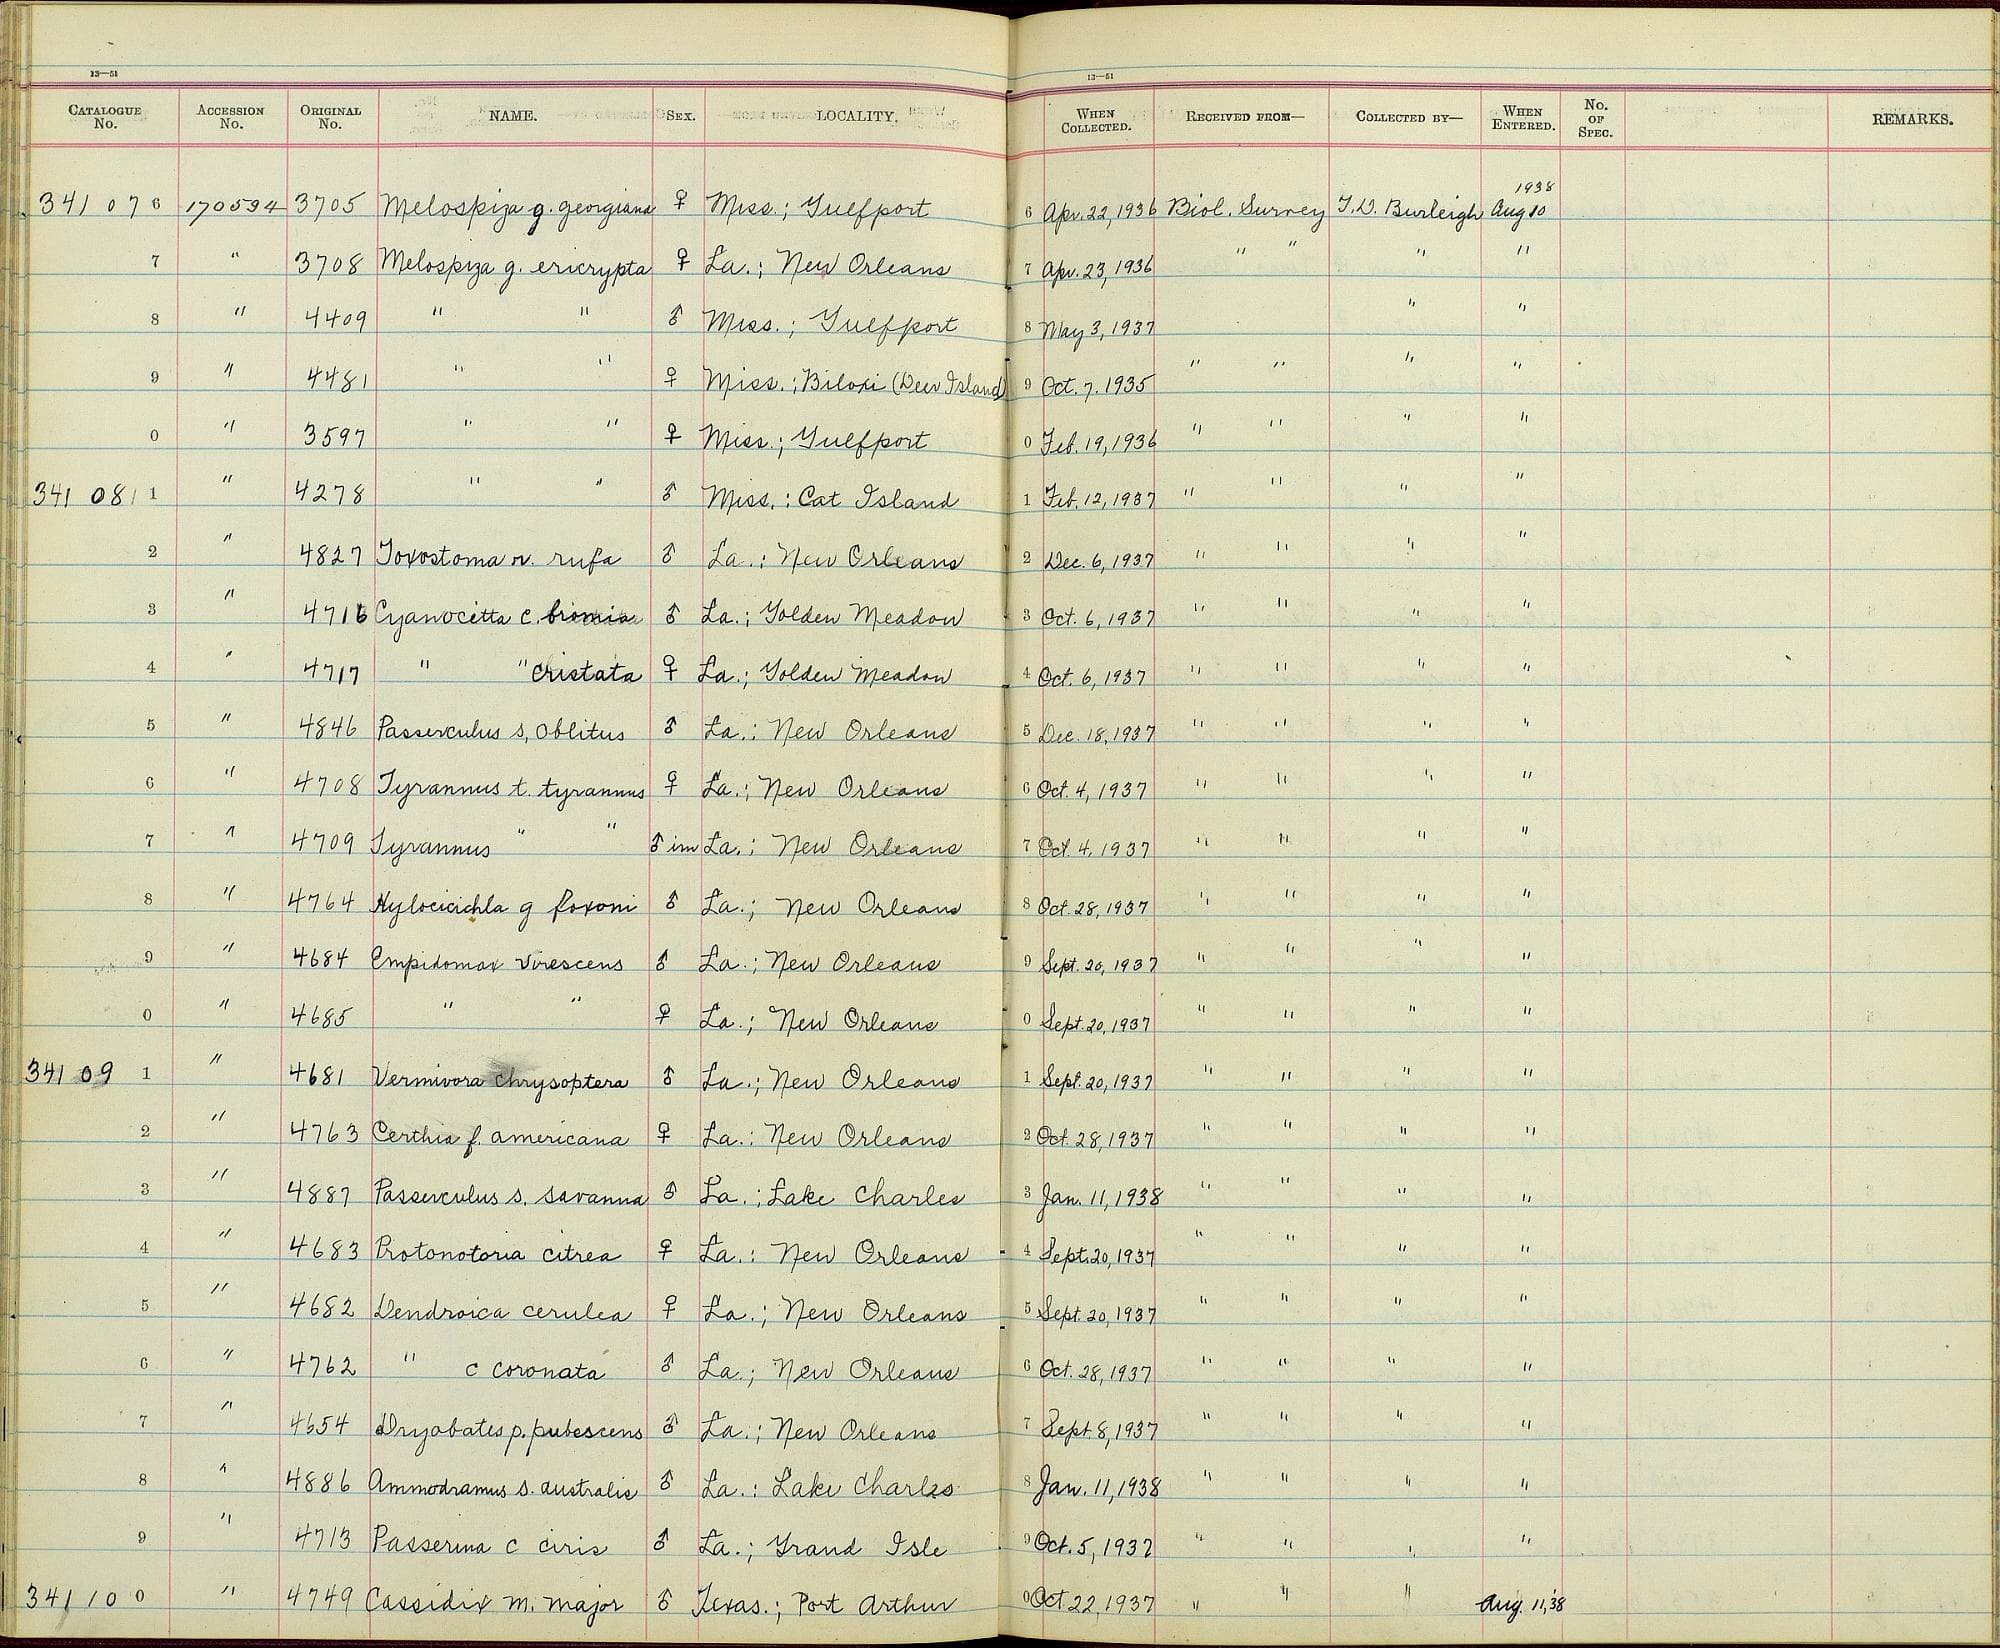 13—51 13—51
CATALOGUE No. ACCESSION No. ORIGINAL No. NAME. SEX. LOCALITY. WHEN COLLECTED. RECEIVED FROM— COLLECTED BY— WHEN ENTERED. No. OF SPEC. REMARKS.
1938
341 07 6 170594 3705 Melospiza g. georgiana ♀ Miss.; Gulfport 6 Apr. 22, 1936 Biol. Survey T.D. Burleigh Aug 10
7 " 3708 Melospiza g. ericrypta ♀ La.; New Orleans 7 Apr. 23, 1936 " " " "
8 " 4409 " " ♂ Miss.; Gulfport 8 May 3, 1937 " "
9 " 4481 " " ♀ Miss.; Biloxi (Deer Island) 9 Oct. 7. 1935 " " " "
0 " 3597 " " ♀ Miss.; Gulfport 0 Feb. 19, 1936 " " " "
341 08 1 " 4278 " " ♂ Miss.: Cat Island 1 Feb. 12, 1937 " " " "
2 " 4827 Toxostoma r. rufa ♂ La.: New Orleans 2 Dec. 6, 1937 " " " "
3 " 4716 Cyanocitta c. bromia ♂ La.; Golden Meadow 3 Oct. 6, 1937 " " " "
4 " 4717 " " cristata ♀ La.; Golden Meadow 4 Oct. 6, 1937 " " " "
5 " 4846 Passerculus s. oblitus ♂ La.: New Orleans 5 Dec. 18, 1937 " " " "
6 " 4708 Tyrannus t. tyrannus ♀ La.; New Orleans 6 Oct. 4, 1937 " " " "
7 " 4709 Tyrannus " " ♂ im La.; New Orleans 7 Oct. 4, 1937 " " " "
8 " 4764 Hylocicichla g foxoni ♂ La.; New Orleans 8 Oct. 28, 1937 " " " "
9 " 4684 Empidomax virescens ♂ La.; New Orleans 9 Sept. 20, 1937 " " " "
0 " 4685 " " ♀ La.; New Orleans 0 Sept. 20, 1937 " " " "
341 09 1 " 4681 Vermivora chrysoptera ♂ La.; New Orleans 1 Sept. 20, 1937 " " " "
2 " 4763 Certhia f. americana ♀ La.: New Orleans 2 Oct. 28, 1937 " " " "
3 " 4887 Passerculus s. savanna ♂ La.; Lake Charles 3 Jan. 11, 1938 " " " "
4 " 4683 Protonotoria citrea ♀ La.: New Orleans 4 Sept. 20, 1937 " " " "
5 " 4682 Dendroica cerulea ♀ La.; New Orleans 5 Sept. 20, 1937 " " " "
6 " 4762 " c coronata ♂ La.; New Orleans 6 Oct. 28, 1937 " " " "
7 " 4654 Dryobates p. pubescens ♂ La.; New Orleans 7 Sept. 8, 1937 " " " "
8 " 4886 Ammodramus s. australis ♂ La.: Lake Charles 8 Jan. 11, 1938 " " " "
9 " 4713 Passerina c ciris ♂ La.; Grand Isle 9 Oct. 5, 1937 " " " "
341 10 0 " 4749 Cassidix m. major ♂ Texas.; Port Arthur 0 Oct 22, 1937 " " " Aug. 11, 38